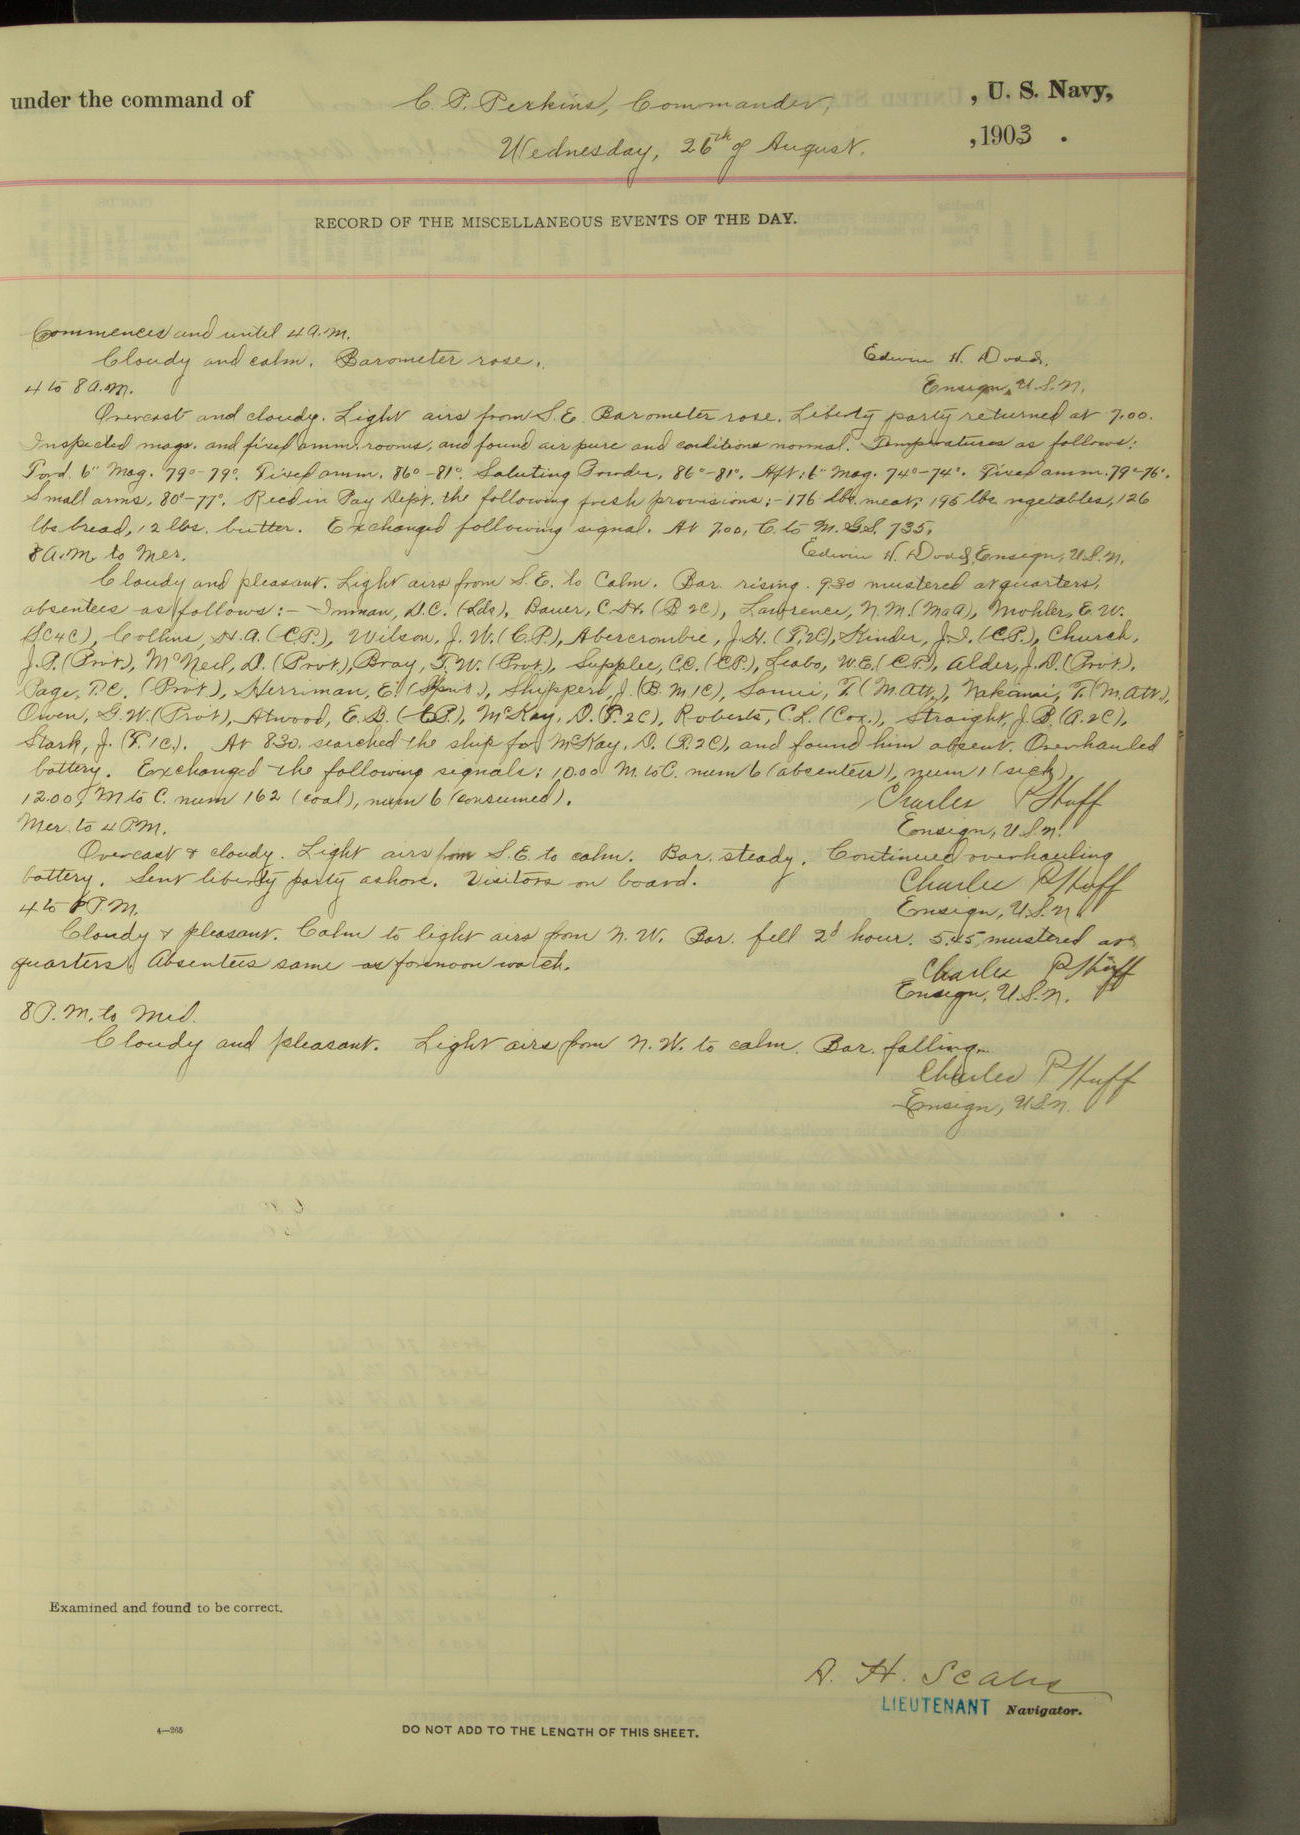 under the command of C. P. Perkins, Commander, , U. S. Navy,
Wednesday, 26th of August. , 1903 .
RECORD OF THE MISCELLANEOUS EVENTS OF THE DAY.
Commences and until 4 A.M.
Cloudy and calm. Barometer rose. Edwin H. Dodd,
4 to 8 A.M. Ensign, U.S.N.
Overcast and cloudy. Light airs from S.E. Barometer rose. Liberty party returned at 7.00.
Inspected mags. and fixed amm. rooms, and found air pure and conditions normal. Temperatures as follows:
For'd. 6" Mag. 79°-79°. Fixed amm. 86°-81°. Saluting Powder, 86°-81°. Aft: 6" Mag. 74°-74°. Fixed amm. 79°-76°.
Small arms, 80°-77°. Recd in Pay Dept. the following fresh provisions:- 176 lbs. meat; 195 lbs. vegetables, 126
lbs bread, 12 lbs. butter. Exchanged following signal. At 7.00, C. to M. G.S. 735.
8 A.M. to Mer. Edwin H. Dodd, Ensign, U.S.N.
Cloudy and pleasant. Light airs from S.E. to Calm. Bar. rising. 9.30 mustered at quarters,
absentees as follows:- Inman, D.C. (Lds), Bauer, C.H. (B 2C), Lawrence, N.M. (MaA), Mohler, E.W.
(SC4C), Collins, H.A. (C.P.), Wilson, J.W. (C.P.), Abercrombie, J.H. (F. 2C), Kinder, J.I. (C.P.), Church,
J.P. (Prvt.), McNeil, D. (Prvt.), Bray, F.W. (Prvt.), Supplee, C.C. (C.P.), Leabo, W.E. (C.P.), Alder, J.D. (Prvt.),
Page, P.C. (Prvt.), Herriman, E. Shippers, J. (B.M. 1C), Samii, T. (M.Att.), Nakamai, T. (M.Att.),
Owen, G.W. (Prvt), Atwood, E.B. (C.P.), McKay, D. (P. 2C), Roberts, C.L. (Cox.), Straight, J.B. (A. 2C),
Stark, J. (F. 1C). At 8.30. searched the ship for McKay, D. (P. 2C), and found him absent. Overhauled
battery. Exchanged the following signals: 10.00 M. to C. num 6 (absentees), num 1 (sick),
12.00, M to C. num 162 (coal), num 6 (consumed). Charles P Huff
Mer. to 4 P.M. Ensign, U.S.N.
Overcast & cloudy. Light airs from S.E. to calm. Bar. steady. Continued overhauling
battery. Sent liberty party ashore. Visitors on board. Charles P Huff
4 to 8 P.M. Ensign, U.S.N.
Cloudy & pleasant. Calm to light airs from N.W. Bar. fell 2d hour. 5.45, mustered at
quarters. Absentees same as forenoon watch. Charles P Huff
Ensign, U.S.N.
8 P.M. to Mid.
Cloudy and pleasant. Light airs from N.W. to calm. Bar. falling.
Charles P Huff
Ensign, U.S.N.
Examined and found to be correct.
A. H. Scales
LIEUTENANT Navigator.
4—265 DO NOT ADD TO THE LENGTH OF THIS SHEET.